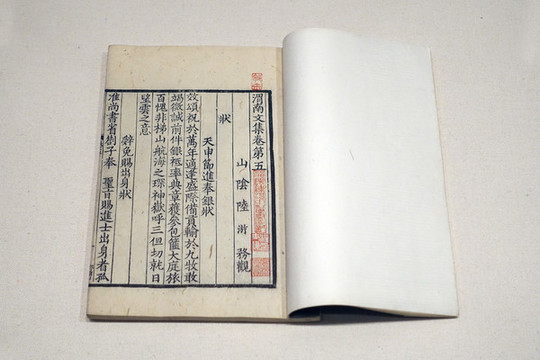 渭南文集卷第五
山陰陸游務觀
狀
天申節進奉銀狀
效頌祝於萬年適逢盛際備貢輸於九牧敢
竭微誠前件銀祗率典章獲參包篚大庭旅
百愧非梯山航海之琛袖嶽呼三但切就日
望雲之意
辭免賜出身狀
准尚書省劄子奉 聖旨賜進士出身者孤